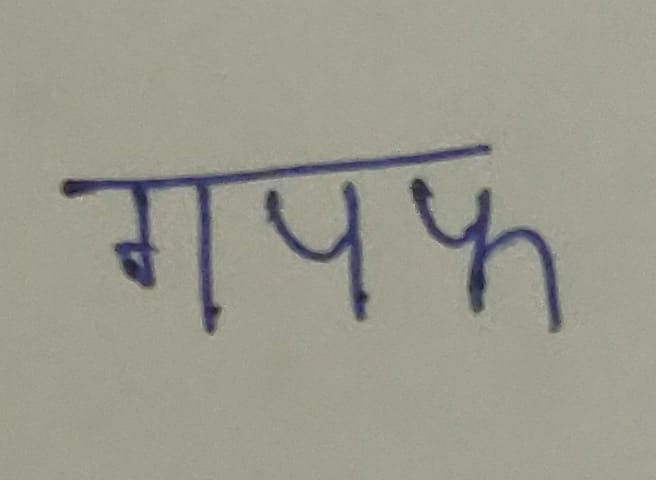 गपफ